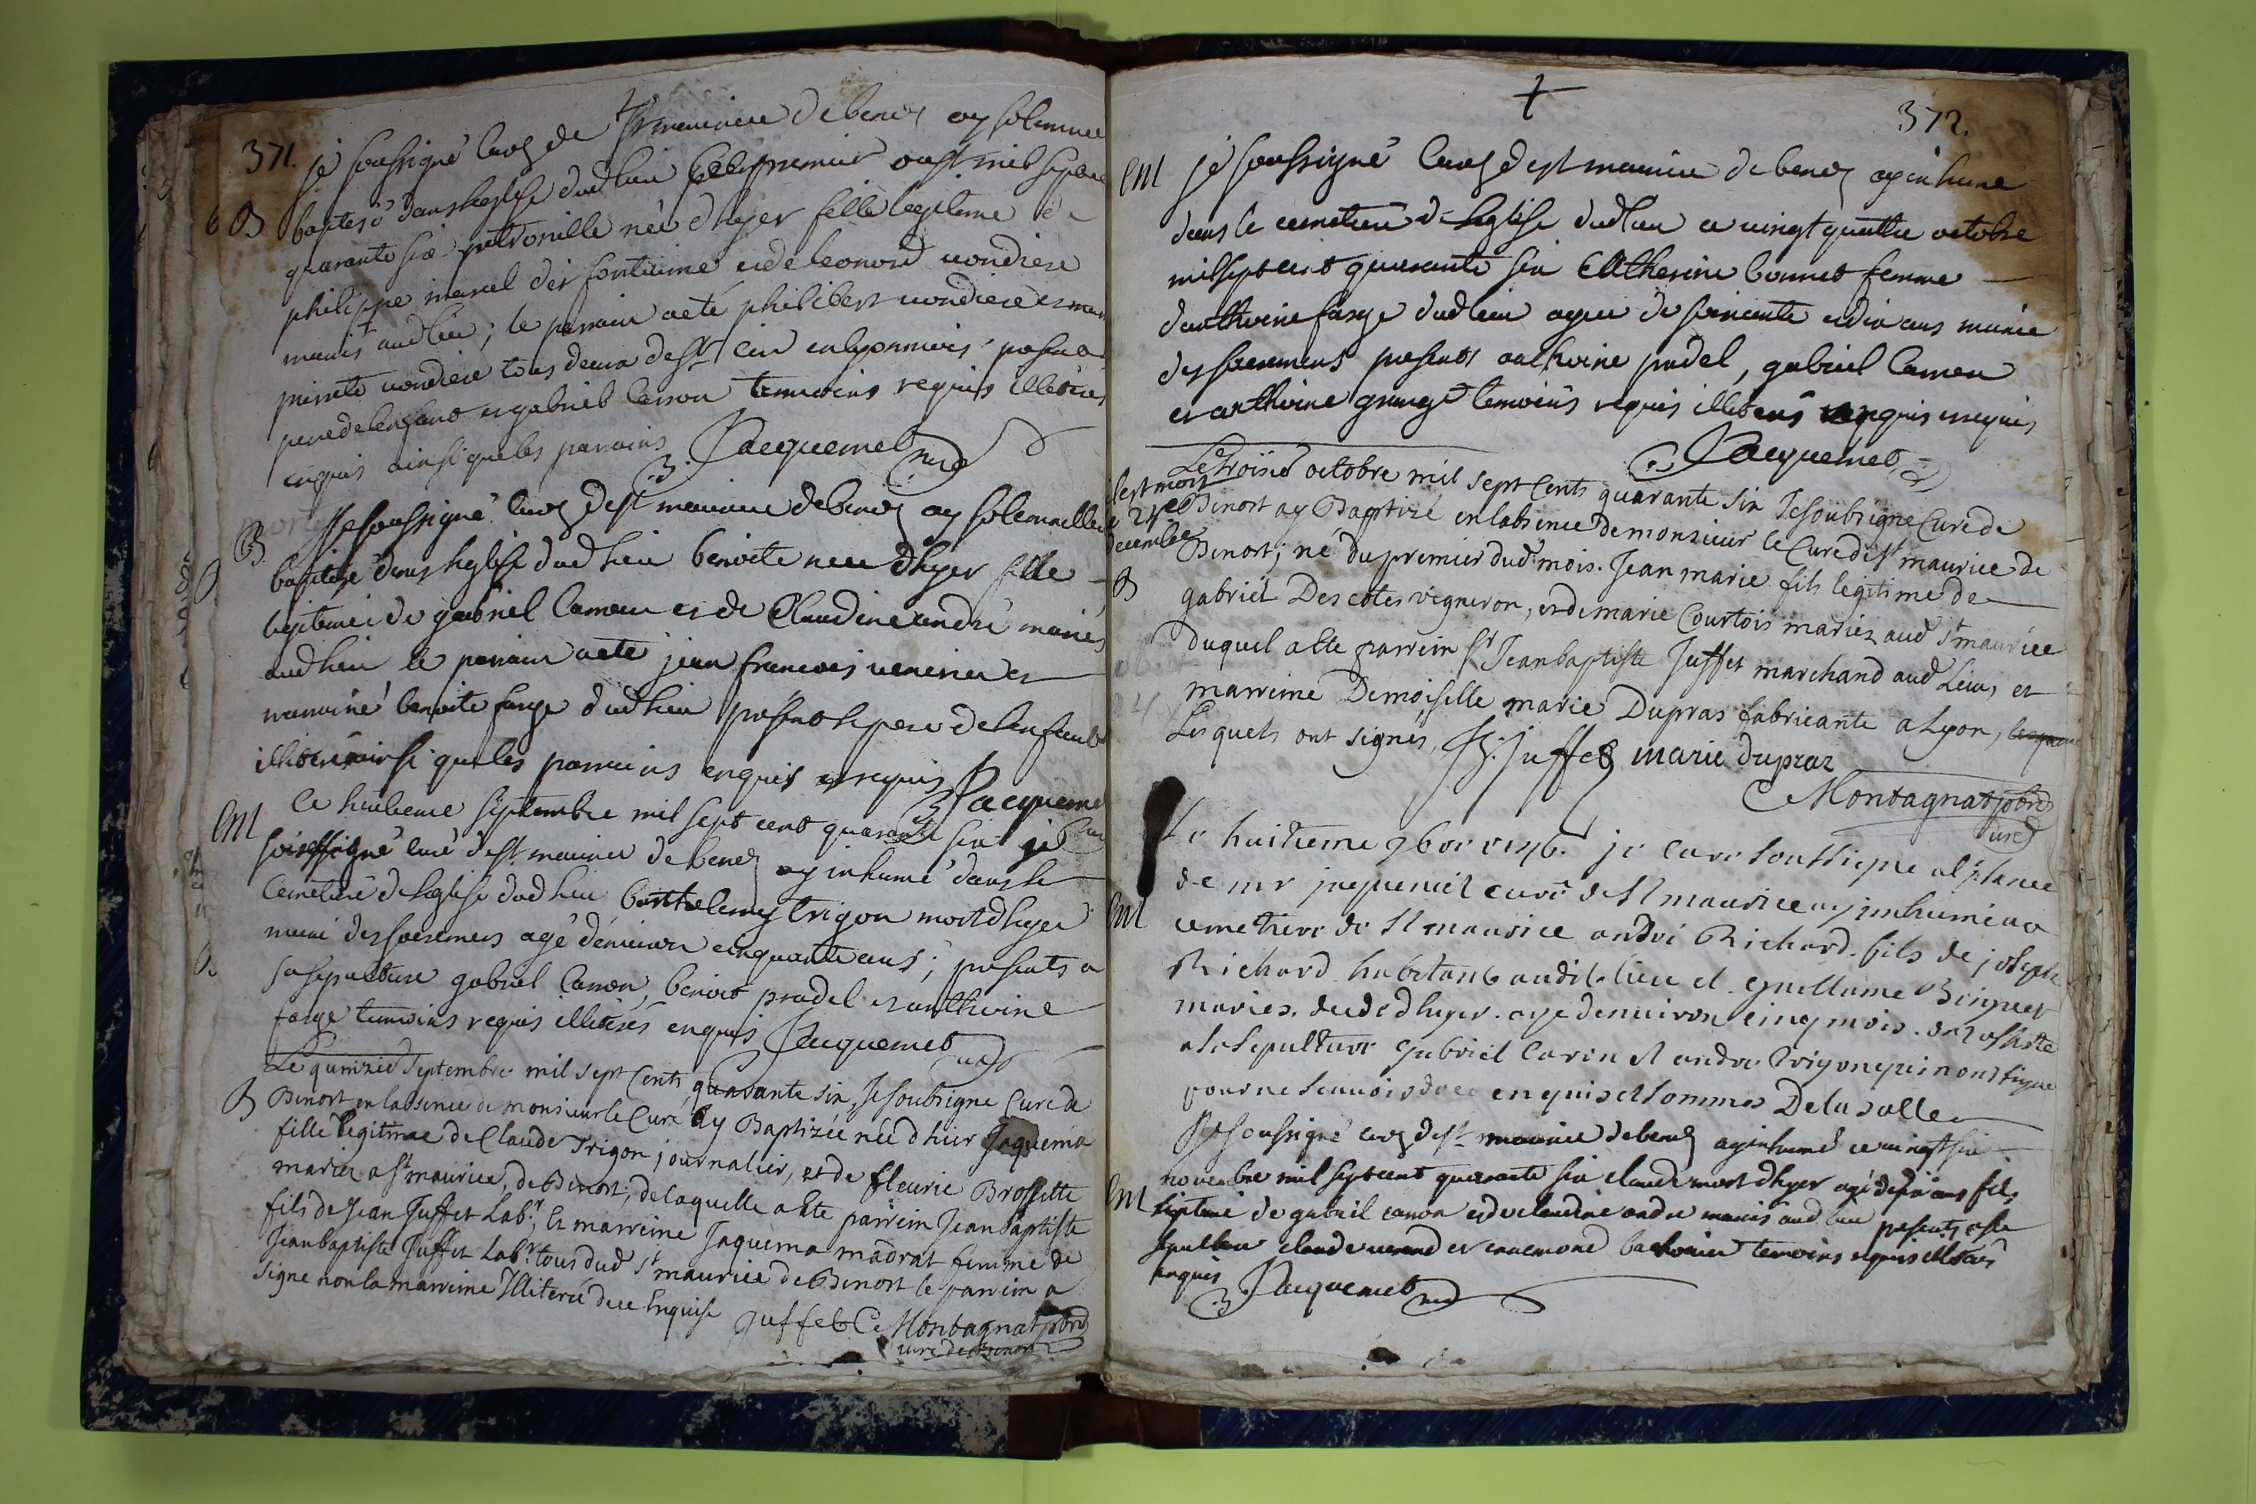 371.
je soussigné curé de St maurice de benos ay solemnell
B baptisé dans leglise dud lieu ce premier aoust mil sept cent
quarante six petronille née dhyer fille legitime de
philippe marcel des fontaine et de leonord vondiere
mariés aud lieu; le parrain a eté philibert vondiere et mar
pierrete vondiere tous deux de St en lyonnois present le
pere de lenfant et gabriel Carron temoins requis illiterés
enquis ainsi que les parrains Jacquemet curé
B je soussigné curé de st maurice de benos ay solemnellem
baptisé dans leglise dud lieu benoite née dhyer fille
legitime de gabriel Carron et de Claudine andré mariés
aud lieu le parrain a eté jean francois et
marraine benoite farge dud lieu present le pere de lenfant
illiteré ainsi que les parrains enquis et requis Jacquemet
EM Ce huitieme septembre mil sept cent quarante six je
soussigné curé de st maurice de benos ay inhumé dans le
cemetiere de leglise dud lieu barthelemy trigon mort dhyer
muni des sacremens agé denviron cinquante ans; presents a
sa sepulture gabriel Carron, benoit pradel et anthoine
farge temoins requis illiterés enquis Jacquemet curé
Le quinzie septembre mil sept Cents quarante six, Je soubsigne Curé de
B Benost en labsence de monsieur le Curé ay Baptizée née d'hier Jaquema
fille legitime de Claude Trigon journalier, et de fleurie Brossette
mariez a St maurice, de Benost; de laquelle a ete parrein Jean Baptiste
fils de Jean Juffet Labr, et marreine Jaquema madrat femme de
Jean baptiste Juffet Labr. tous dud St maurice de Benost le parrein a
signe non la marreine Illiterée de ce Enquise Juffet C. Montagnat
curé de Benost
372.
EM je soussigné curé de st maurice de benos ay inhumé
dans le cemetiere de leglise dud lieu ce vingt quattre octobre
mil sept cent quarante six Catherine bonnet femme
danthoine farge dud lieu agée de soixante et dix ans munie
des sacremens presents anthoine pradel, gabriel Carron
et anthoine grange temoins requis illiterés enquis et requis
Jacquemet
Le troisie octobre mil sept Cents quarante six Je soubsigne Curé de
il est mort
le 24e
decembre
Benost ay Baptizé en labsence de monsieur le Curé de St maurice de
B Benost; né du premier dud. mois. Jean marie fils legitime de
gabriel Descotes vigneron, et de marie Courtois mariez aud St maurice
duquel a ete parrein Sr Jean baptiste Juffet marchand aud. Lieu, et
marreine Demoiselle marie Dupras fabricante a Lyon,
Lesquels ont signés, J. B. juffet marie dupraz
C. Montagnat
curé
Le huitieme 9bre 1746. je curé soussigné al'absence
de mr jaquemet curé de St maurice ay inhumé au
EM cemetiere de St maurice andré Richard. fils de joseph
Richard habitant audit lieu et guillame Birguer
mariés. decedé dhyer. agé denviron cinq mois. ont assisté
a la sepulture gabriel Carin et andré trigon qui n'ont signé
pour ne scavoir de ce enquis et sommés Delasalle
Je soussigné curé de St maurice de benos ay inhumé ce vingt six
novembre mil sept cent quarante six claude mort dhyer agé de six ans fils
EM legitime de gabriel carron et de claudine andre mariés aud lieu presents a sa
sepulture claude et temoins requis illiterés
enquis Jacquemet curé